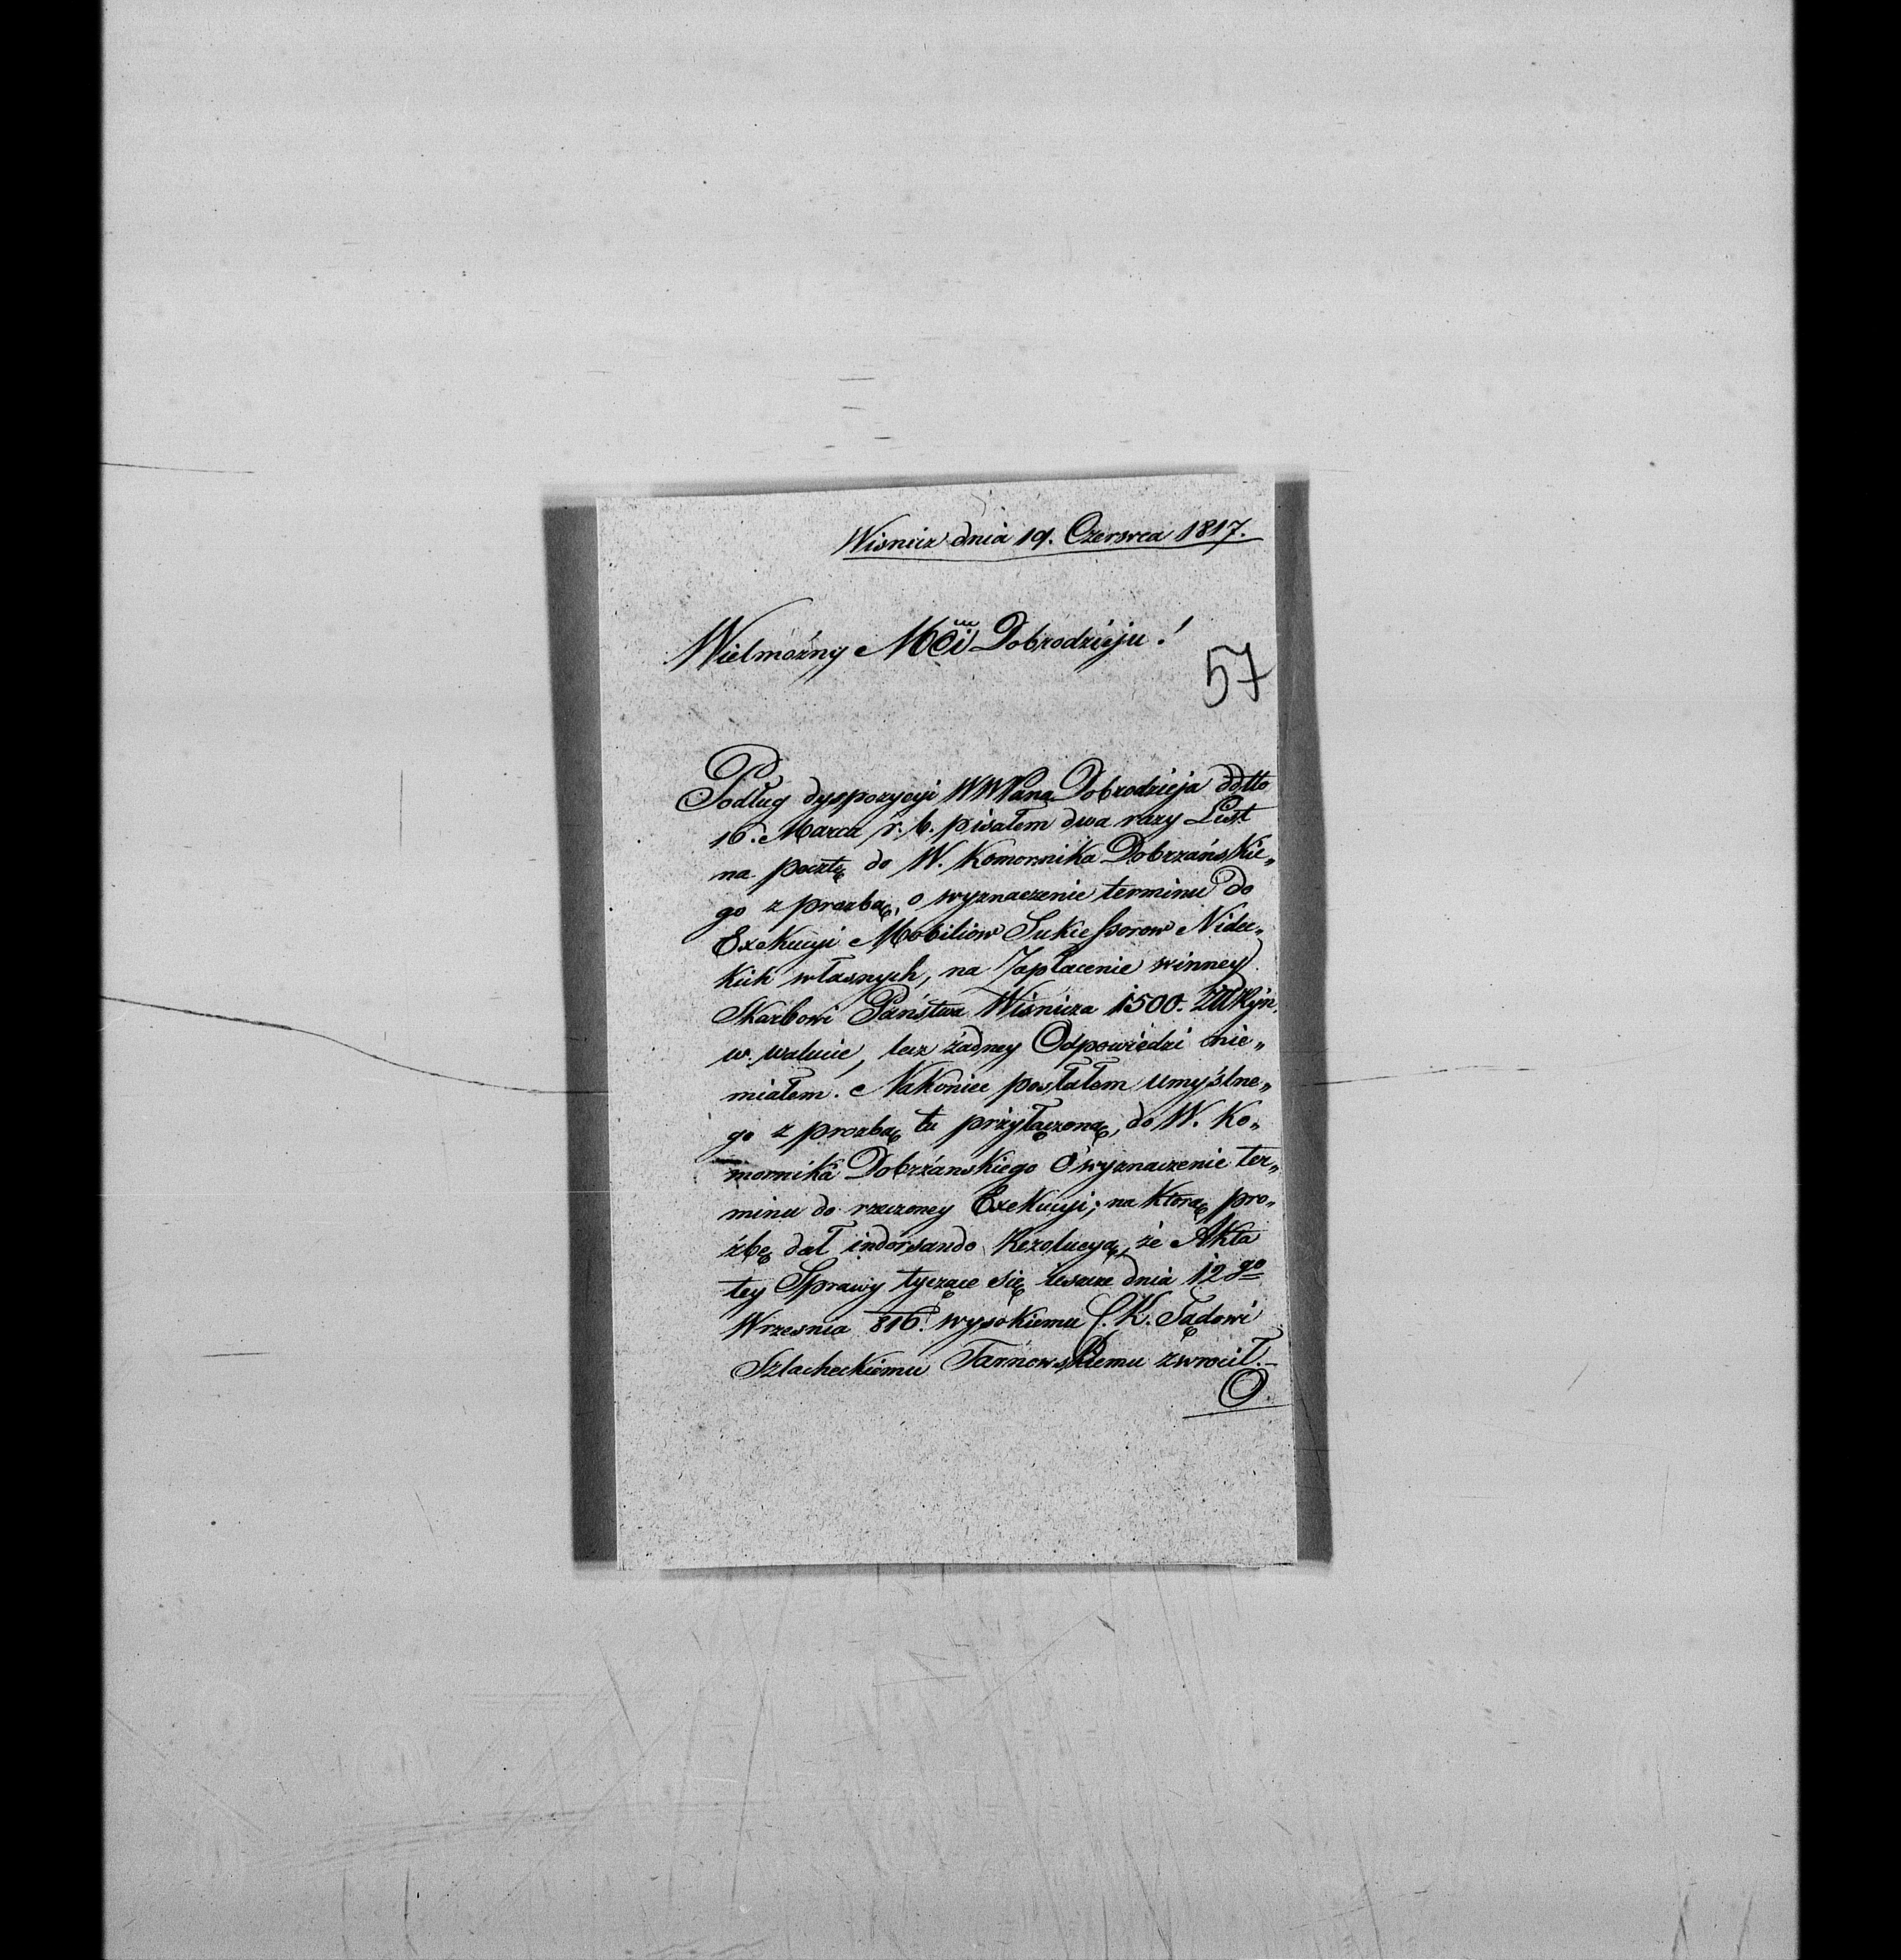 Wisnicz dnia 19. Czerwca 1817.
Wielmożny Mci Dobrodzieju!
57
Podług dyspozycyi WWPana Dobrodzieja ddtto
16. Marca r. b. pisałem dwa razy List
na pocztę do W. Komornika Dobrzańskie„
go z prozbą, o wyznaczenie terminu do
Exekucyi Mobiliow Sukcessorow Nidec„
kich własnych, na Zapłacenie winney
Skarbowi Państwa Wisnicza 1500. ZłRyn.
w. walucie, lecz żadney Odpowiedzi nie„
miałem. Nakoniec posłałem umyślne„
go z prozbą tu przyłączoną, do W. Ko„
mornika Dobrzanskiego o wyznaczenie ter„
minu do rzeczoney Exekucyi; na którą pro„
źbę dał indorsando Rezolucyą, że Akta
tey Sprawy tyczące się jeszcze dnia 12go
Wrzesnia 816. wysokiemu C. K. Sądowi
Szlacheckiemu Tarnowskiemu zwrocił.–
O.